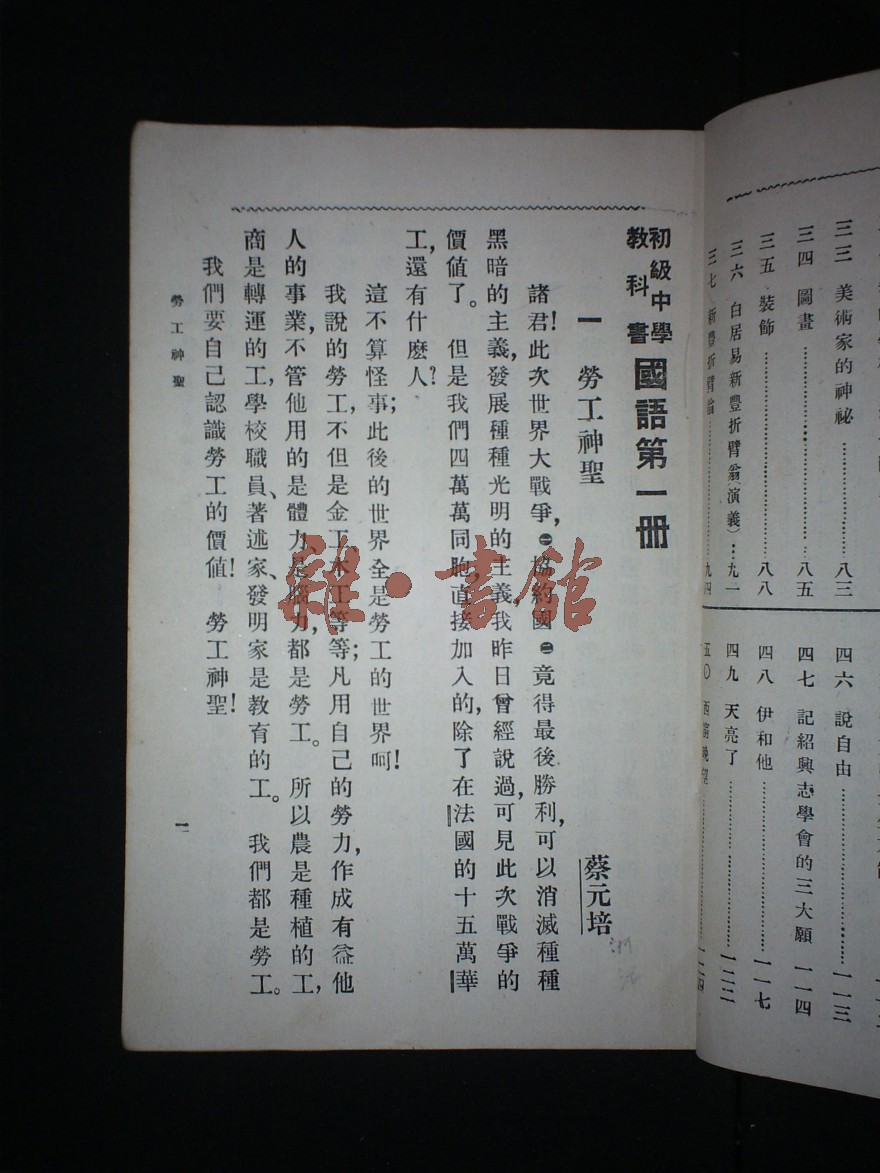 三三 美術家的神祕………………八三
三四 圖畫………………八五
三五 裝飾………………八八
三六 白居易新豐折臂翁(演義)…九一
三七 新豐折臂翁………………九四
四六 說自由………………一一三
四七 記紹興志學會的三大願 一一四
四八 伊和他………………一一七
四九 天亮了………………一二二
五〇 西 晚望………………一二四
初級中學教科書 國語第一册
一 勞工神聖 蔡元培
諸君!此次世界大戰爭,㊀協約國㊁竟得最後勝利,可以消滅種種
黑暗的主義,發展種種光明的主義,我昨日曾經說過,可見此次戰爭的
價値了。但是我們四萬萬同胞,直接加入的,除了在法國的十五萬華
工,還有什麼人?
這不算怪事;此後的世界,全是勞工的世界呵!
我說的勞工,不但是金工、木工等等;凡用自己的勞力,作成有益他
人的事業,不管他用的是體力、是腦力,都是勞工。所以農是種植的工,
商是轉運的工,學校職員、著述家、發明家是教育的工。我們都是勞工。
我們要自己認識勞工的價値!勞工神聖!
勞工神聖
一
雜·書館